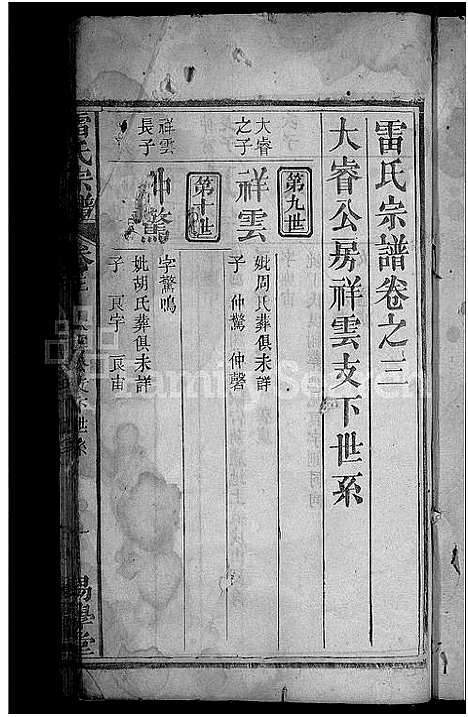 雷氏宗譜卷之三
大睿公房祥雲支下世系
第九世
大睿之子
祥雲
妣周氏葬俱未詳
子 仲驚 仲磬
第十世
祥雲長子
仲驚
字驚鳴
妣胡氏葬俱未詳
子 艮宇 艮宙
雷氏宗譜
卷之三
支下世系
一
易學堂
FamilySearch